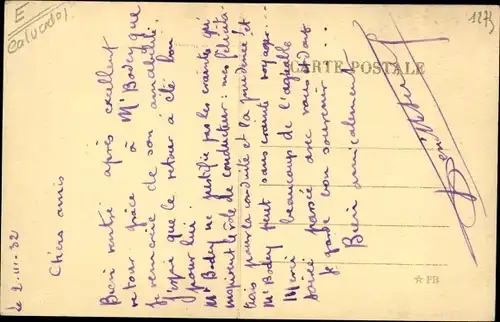 E
Calvados
1273
CARTE POSTALE
le 2-III-32
Chers amis
Bien rentré après excellent
retour grâce à Mr Bodey que
je remercie de son amabilité.
J'espère que le retour a été bon
pour lui.
Mr Bodey ne justifie pas les craintes qui
inspirent le rôle de conducteur: mes félicita-
tions pour la conduite et la prudence et
Mr Bodey peut sans crainte voyager
Merci beaucoup de l'agréable
soirée passée avec vous et dont
je garde bon souvenir
Bien amicalement
☆ FB